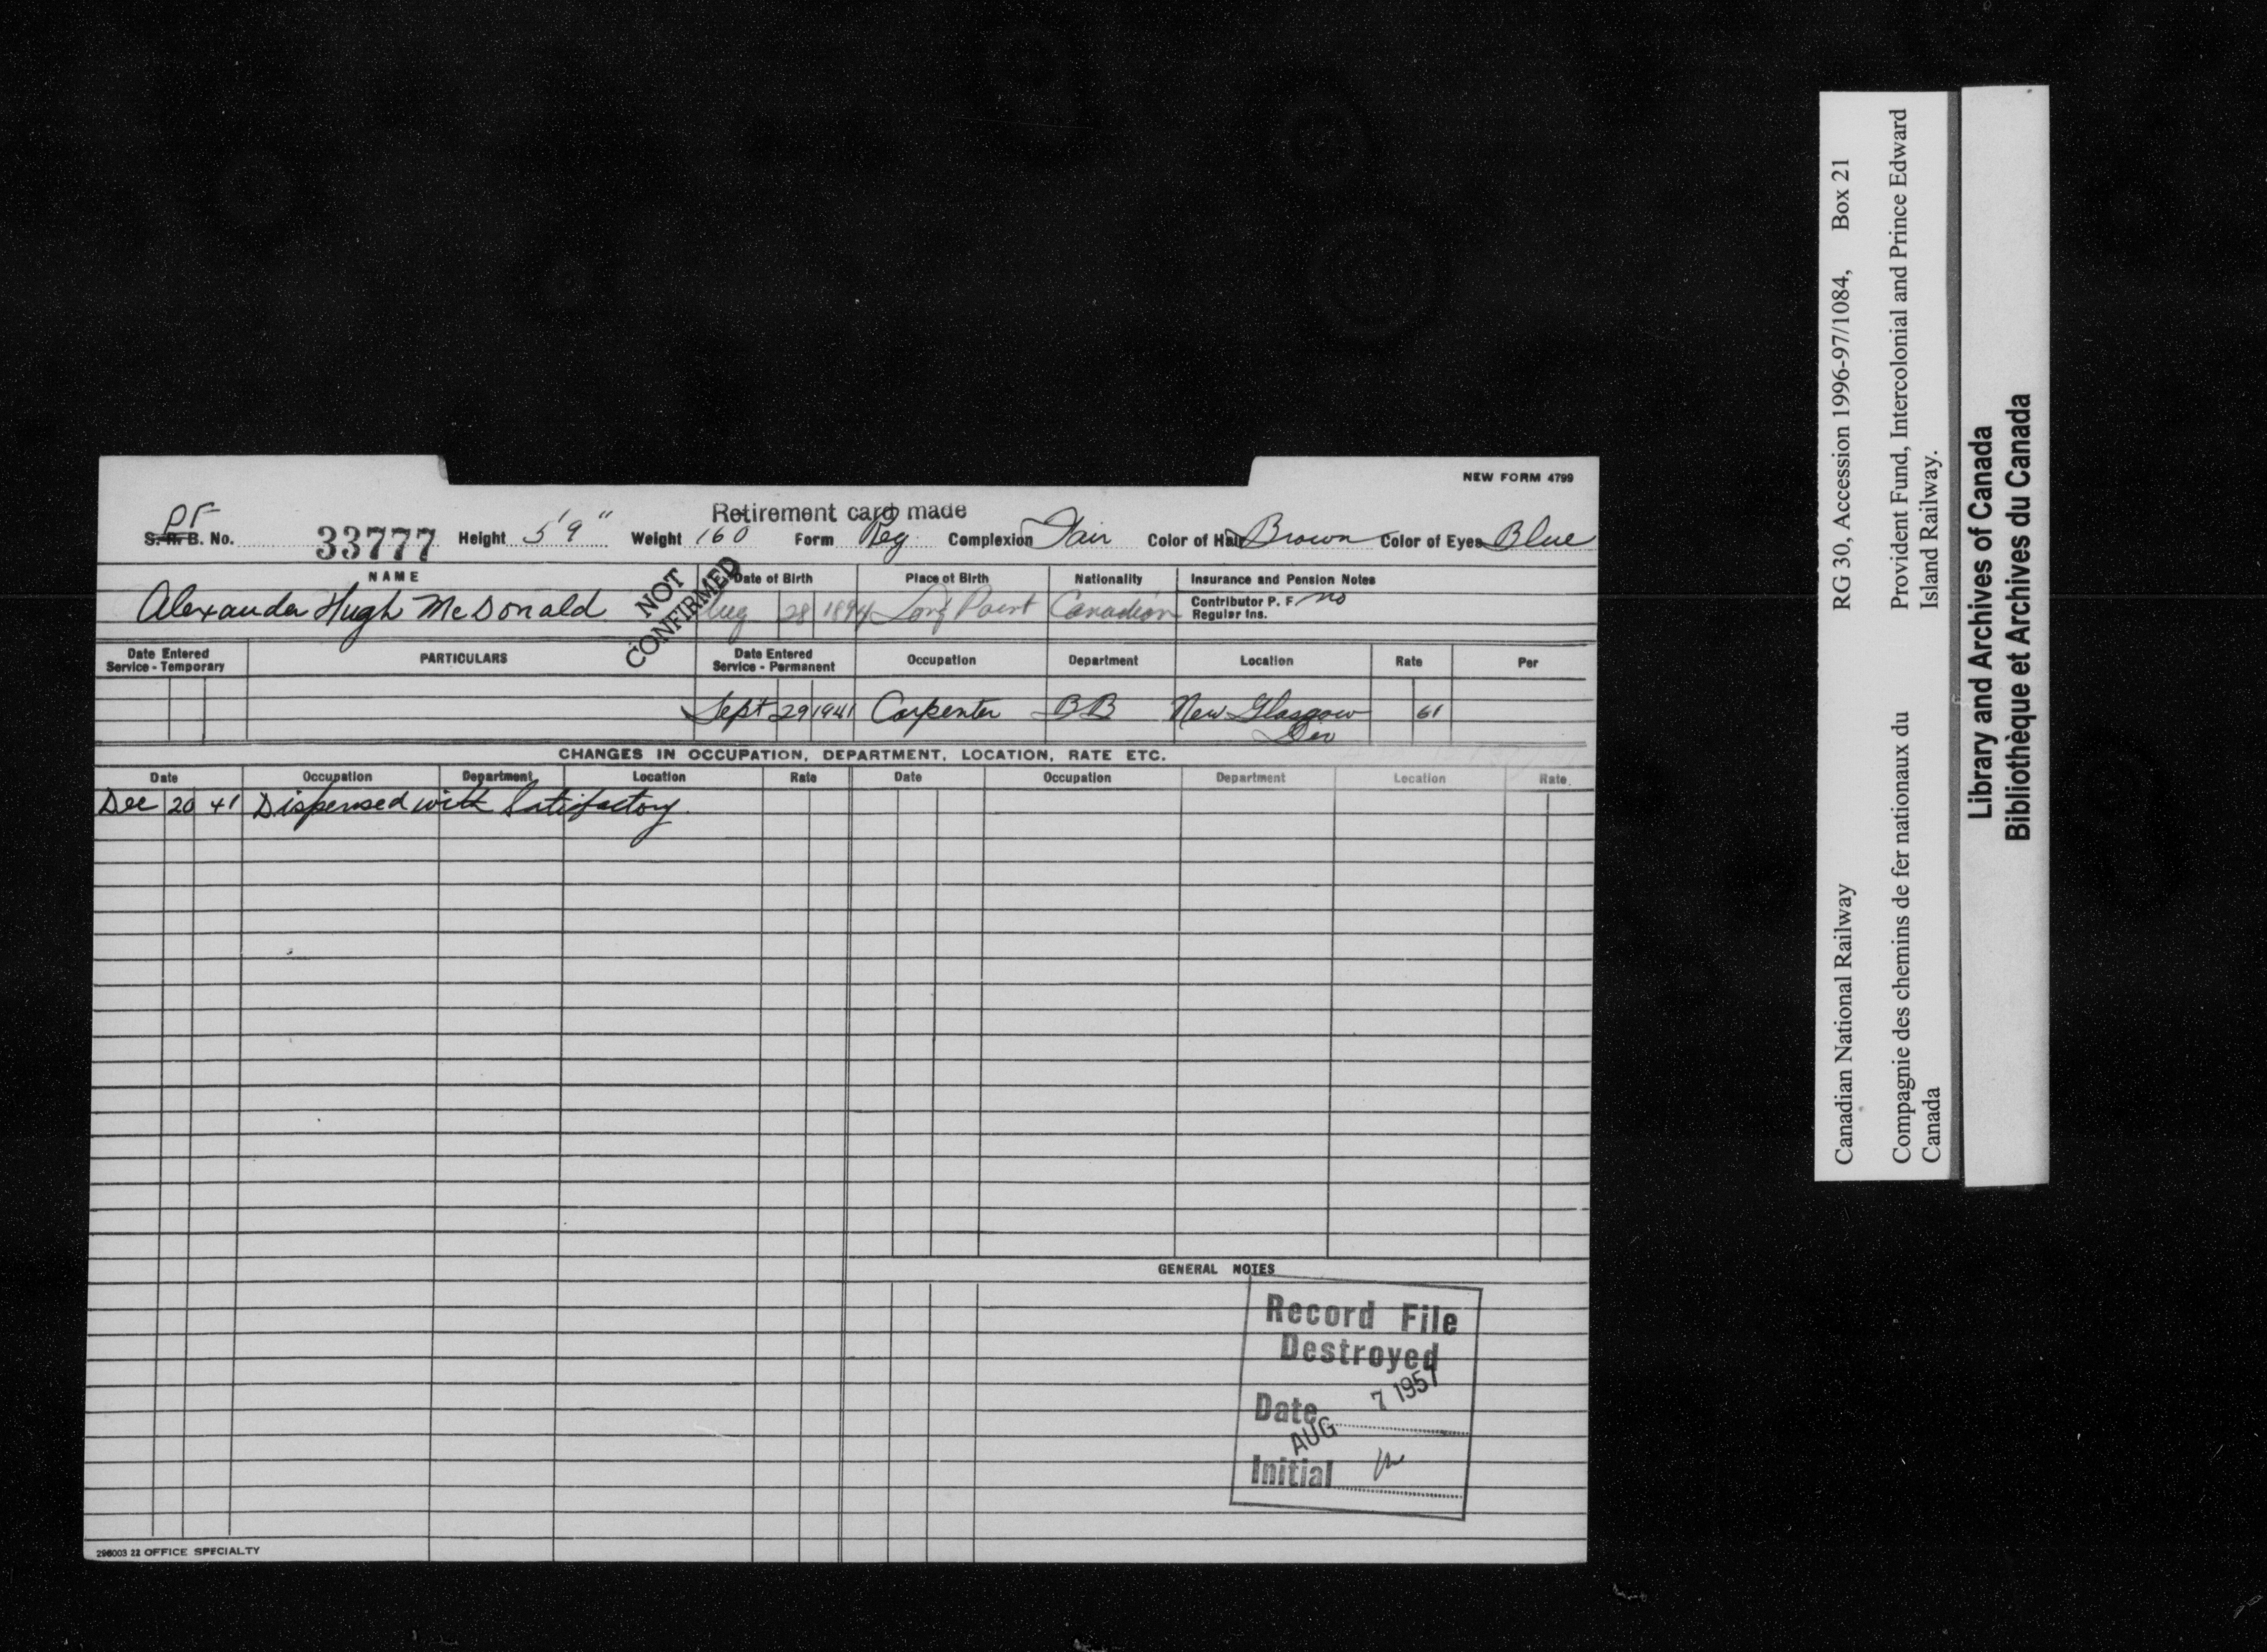 NEW FORM 4799
Retirement card made
PF
S. R. B. No. 33777 Height 5'9" Weight 160 Form Reg Complexion Fair Color of Hair Brown Color of Eyes Blue
NAME Date of Birth Place of Birth Nationality Insurance and Pension Notes
Alexander Hugh McDonald NOT CONFIRMED Aug 28 1894 Long Point Canadian Contributor P. F. no
Regular Ins.
Date Entered Service - Temporary PARTICULARS Date Entered Service - Permanent Occupation Department Location Rate Per
Sept 29 1941 Carpenter BB New Glasgow Div 61
CHANGES IN OCCUPATION, DEPARTMENT, LOCATION, RATE ETC.
Date Occupation Department Location Rate Date Occupation Department Location Rate
Dec 20 41 Dispensed with Satisfactory.
GENERAL NOTES
Record File
Destroyed
Date AUG 7 1957
Initial
298003 22 OFFICE SPECIALTY
Canadian National Railway RG 30, Accession 1996-97/1084, Box 21
Compagnie des chemins de fer nationaux du Provident Fund, Intercolonial and Prince Edward
Canada Island Railway.
Library and Archives of Canada
Bibliothèque et Archives du Canada